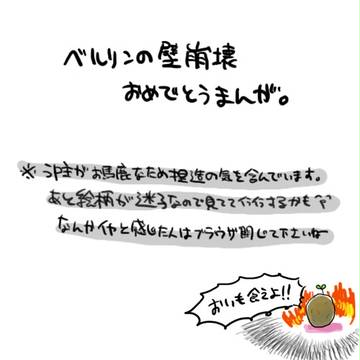 ベルリンの壁崩壊
おめでとうまんが。
※うp主がお馬鹿なため捏造の気を含んでいます。
あと絵柄が迷子なので見ててイライラするかも
なんかイヤと感じた人はブラウザ閉じて下さいな
おいも食えよ!!